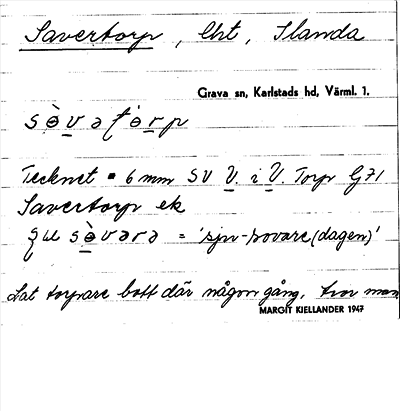 Savertorp, lht, Ilanda
Grava sn, Karlstads hd, Värml. 1.
Tecknet • 6 mm SV V. i V. Torp G71
Savertorp ek
= 'sju-sovare (dagen)'
Lat torpare bott där någon gång, tror man
MARGIT KIELLANDER 1947